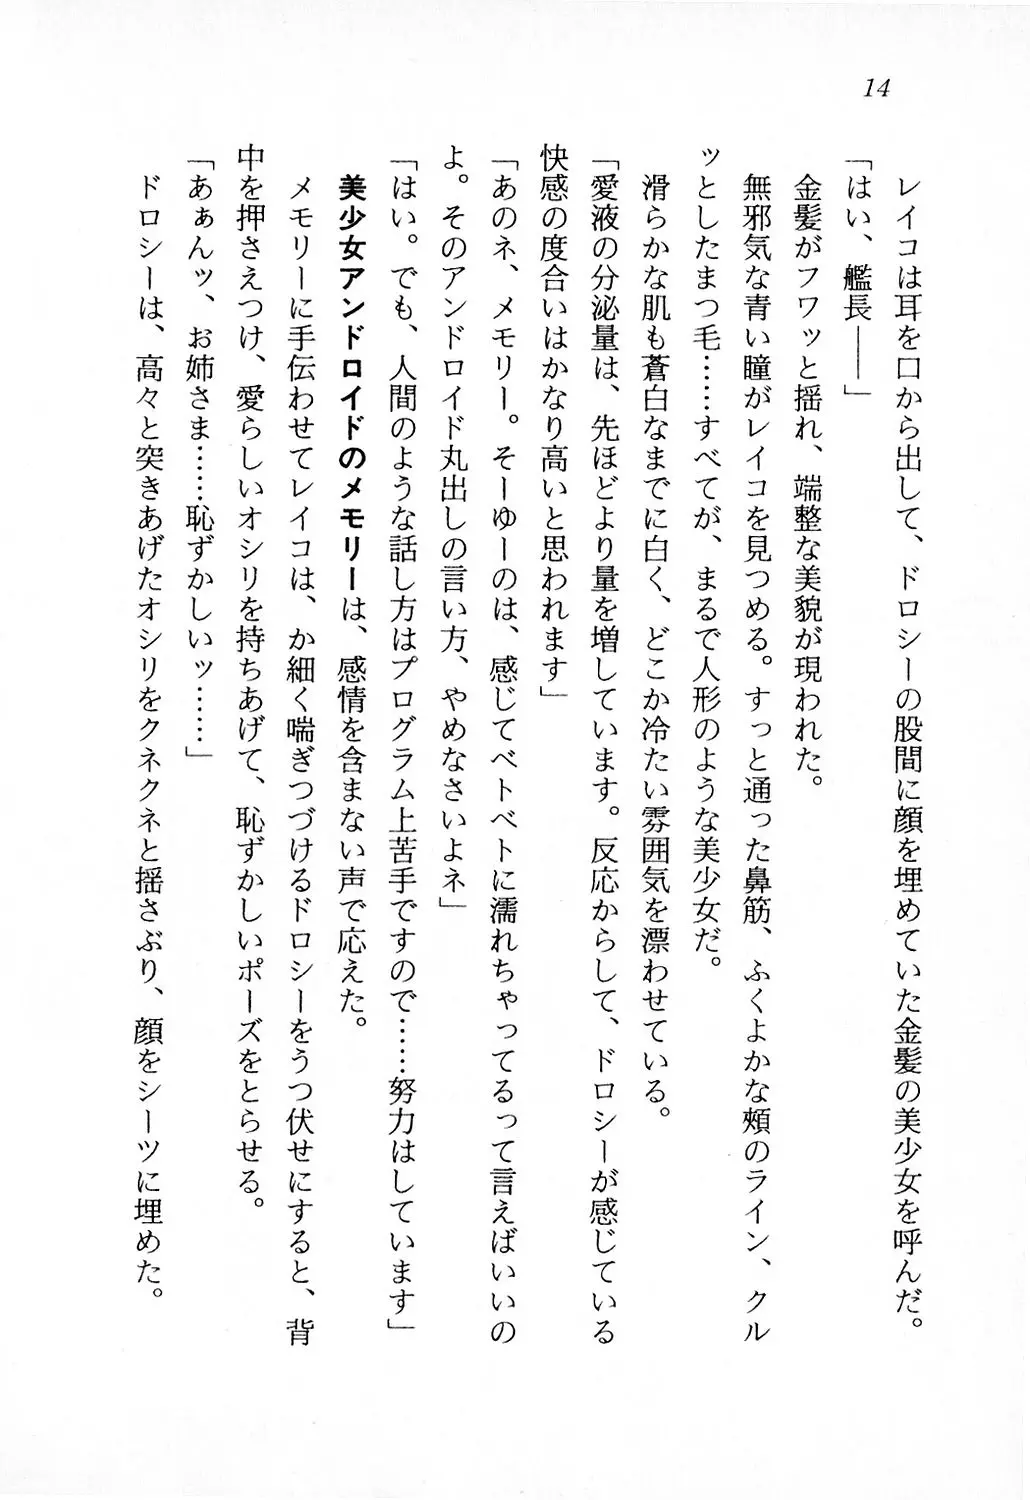 14
レイコは耳を口から出して、ドロシーの股間に顔を埋めていた金髪の美少女を呼んだ。
「はい、艦長――」
金髪がフワッと揺れ、端整な美貌が現われた。
無邪気な青い瞳がレイコを見つめる。すっと通った鼻筋、ふくよかな頰のライン、クル
ッとしたまつ毛……すべてが、まるで人形のような美少女だ。
滑らかな肌も蒼白なまでに白く、どこか冷たい雰囲気を漂わせている。
「愛液の分泌量は、先ほどより量を増しています。反応からして、ドロシーが感じている
快感の度合いはかなり高いと思われます」
「あのネ、メモリー。そーゆーのは、感じてベトベトに濡れちゃってるって言えばいいの
よ。そのアンドロイド丸出しの言い方、やめなさいよネ」
「はい。でも、人間のような話し方はプログラム上苦手ですので……努力はしています」
美少女アンドロイドのメモリーは、感情を含まない声で応えた。
メモリーに手伝わせてレイコは、か細く喘ぎつづけるドロシーをうつ伏せにすると、背
中を押さえつけ、愛らしいオシリを持ちあげて、恥ずかしいポーズをとらせる。
「あぁんッ、お姉さま……恥ずかしいッ……」
ドロシーは、高々と突きあげたオシリをクネクネと揺さぶり、顔をシーツに埋めた。